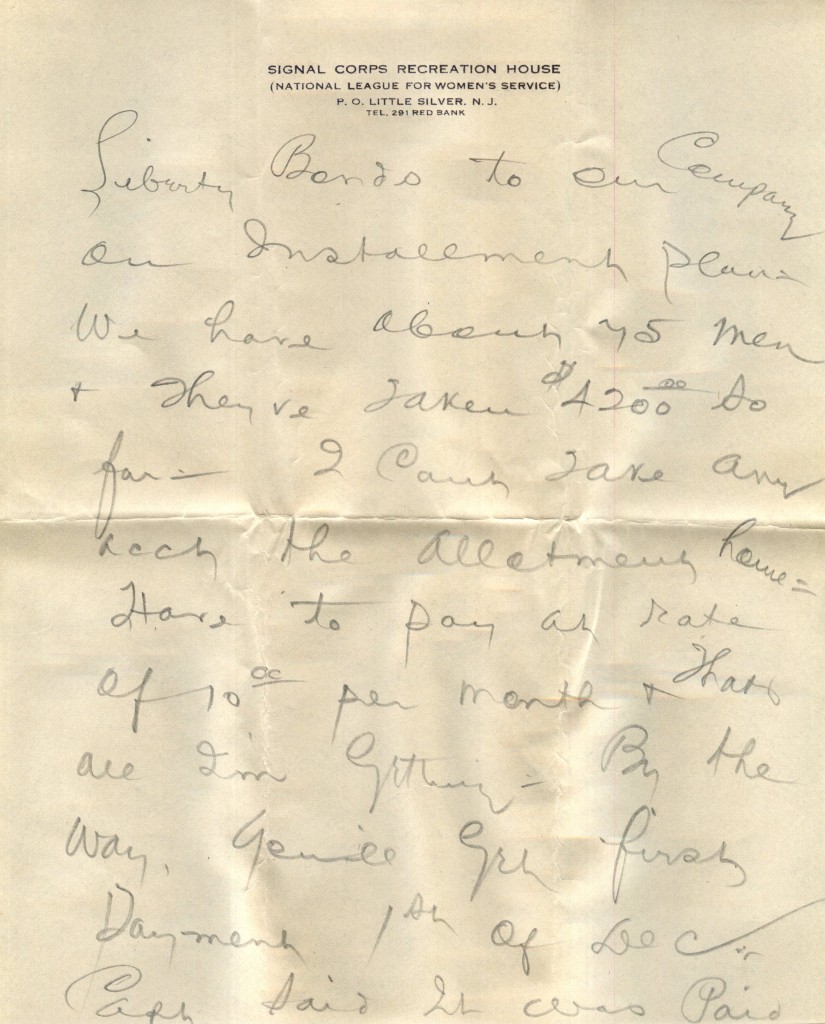 SIGNAL CORPS RECREATION HOUSE
(NATIONAL LEAGUE FOR WOMEN'S SERVICE)
P. O. LITTLE SILVER, N. J.
TEL. 291 RED BANK
Liberty Bonds to our Company
on Installment plan -
We have about 75 men
+ They've taken $4200.00 so
far - I Can't take any
acct the allotment home -
Have to pay at rate
of 10.00 per month + That's
all I'm Getting - By the
way, You'll Get first
Payment 1st of Dec -
Capt said It was Paid